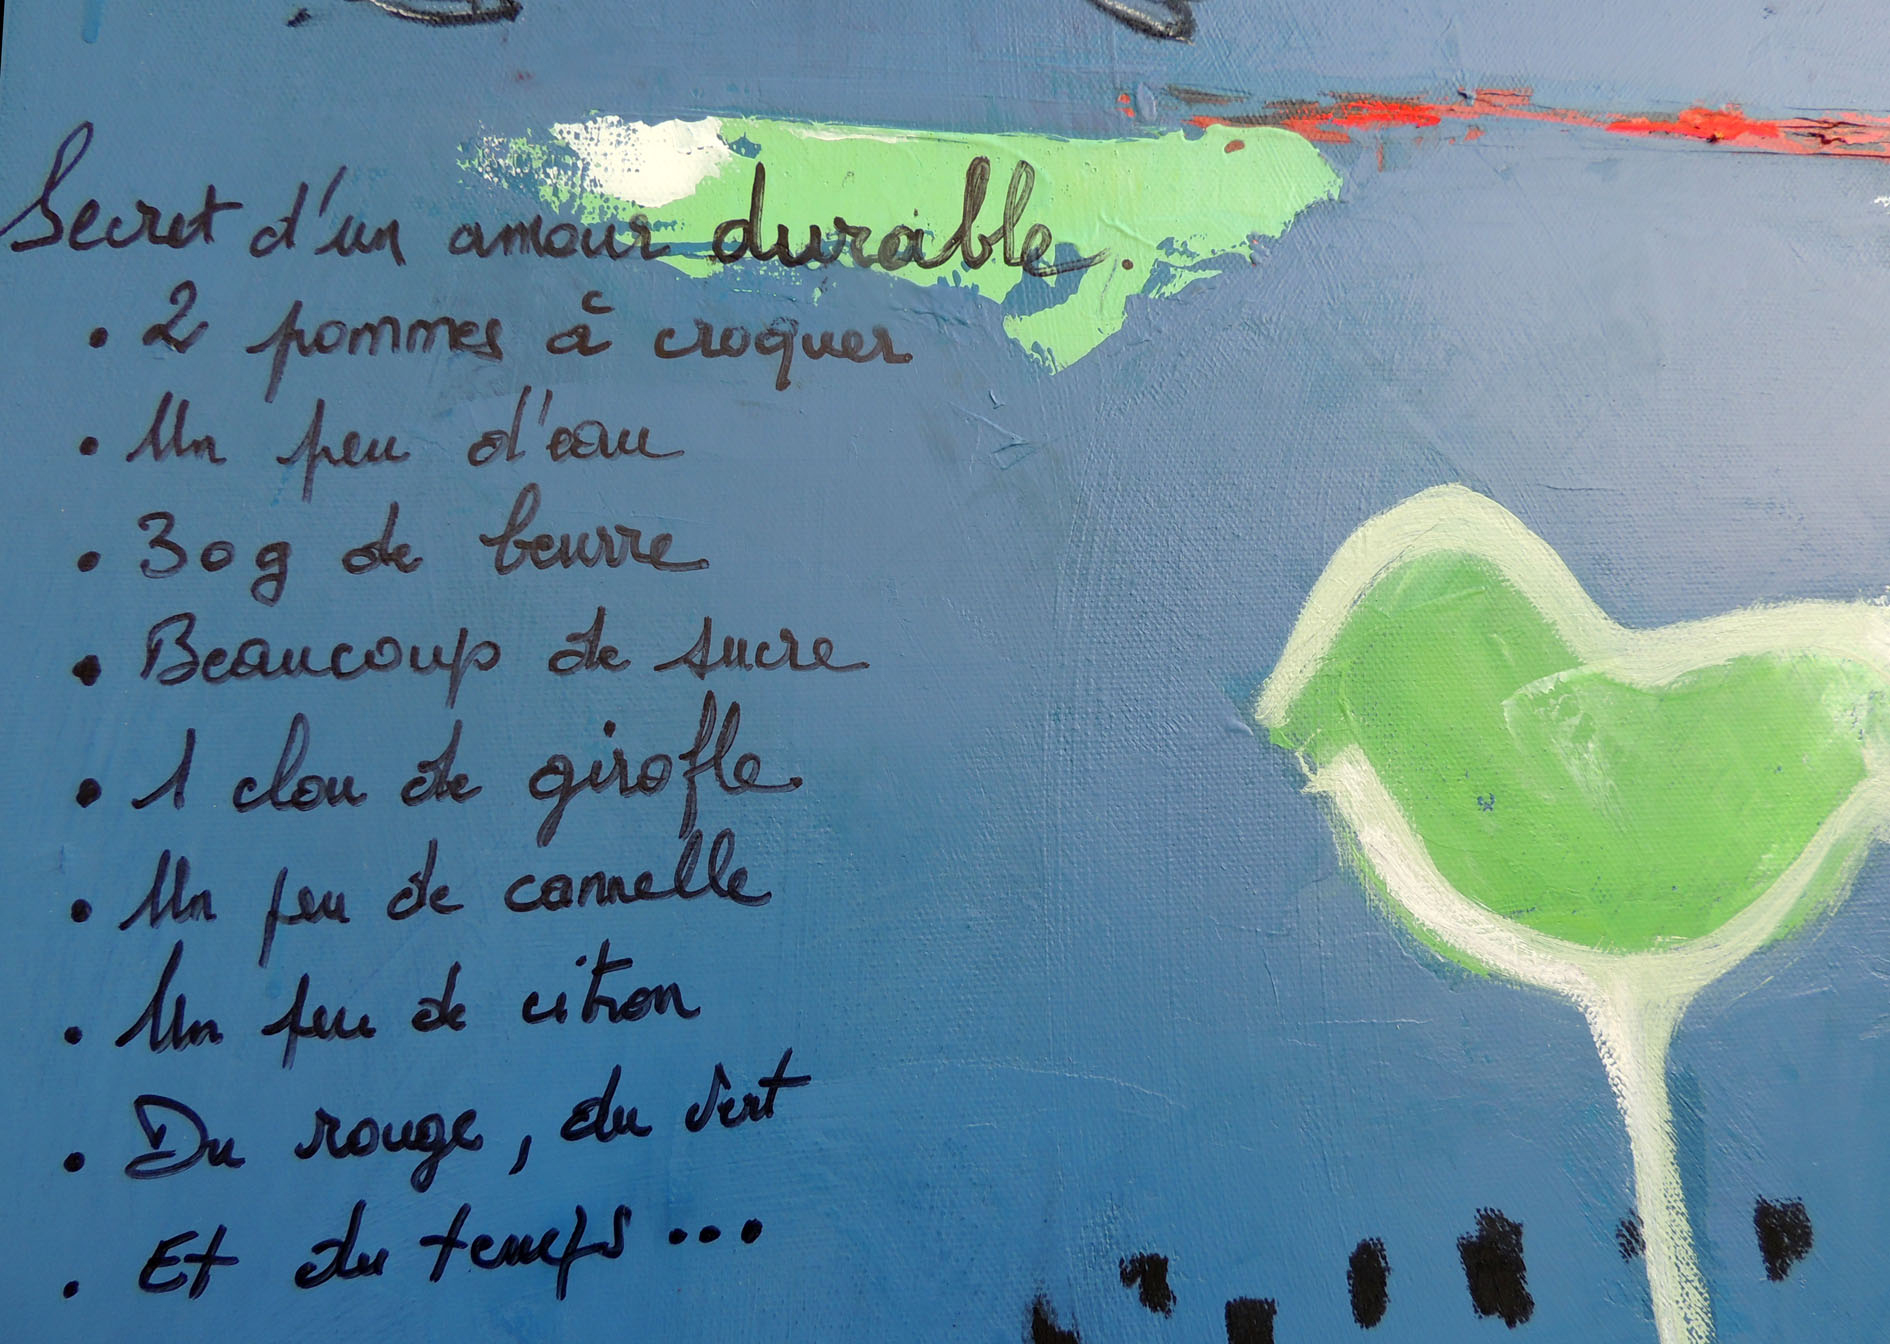 Secret d'un amour durable.
• 2 pommes à croquer
• Un peu d'eau
• 30g de beurre
• Beaucoup de sucre
• 1 clou de girofle
• Un peu de cannelle
• Un peu de citron
• Du rouge, du vert
• Et du temps...